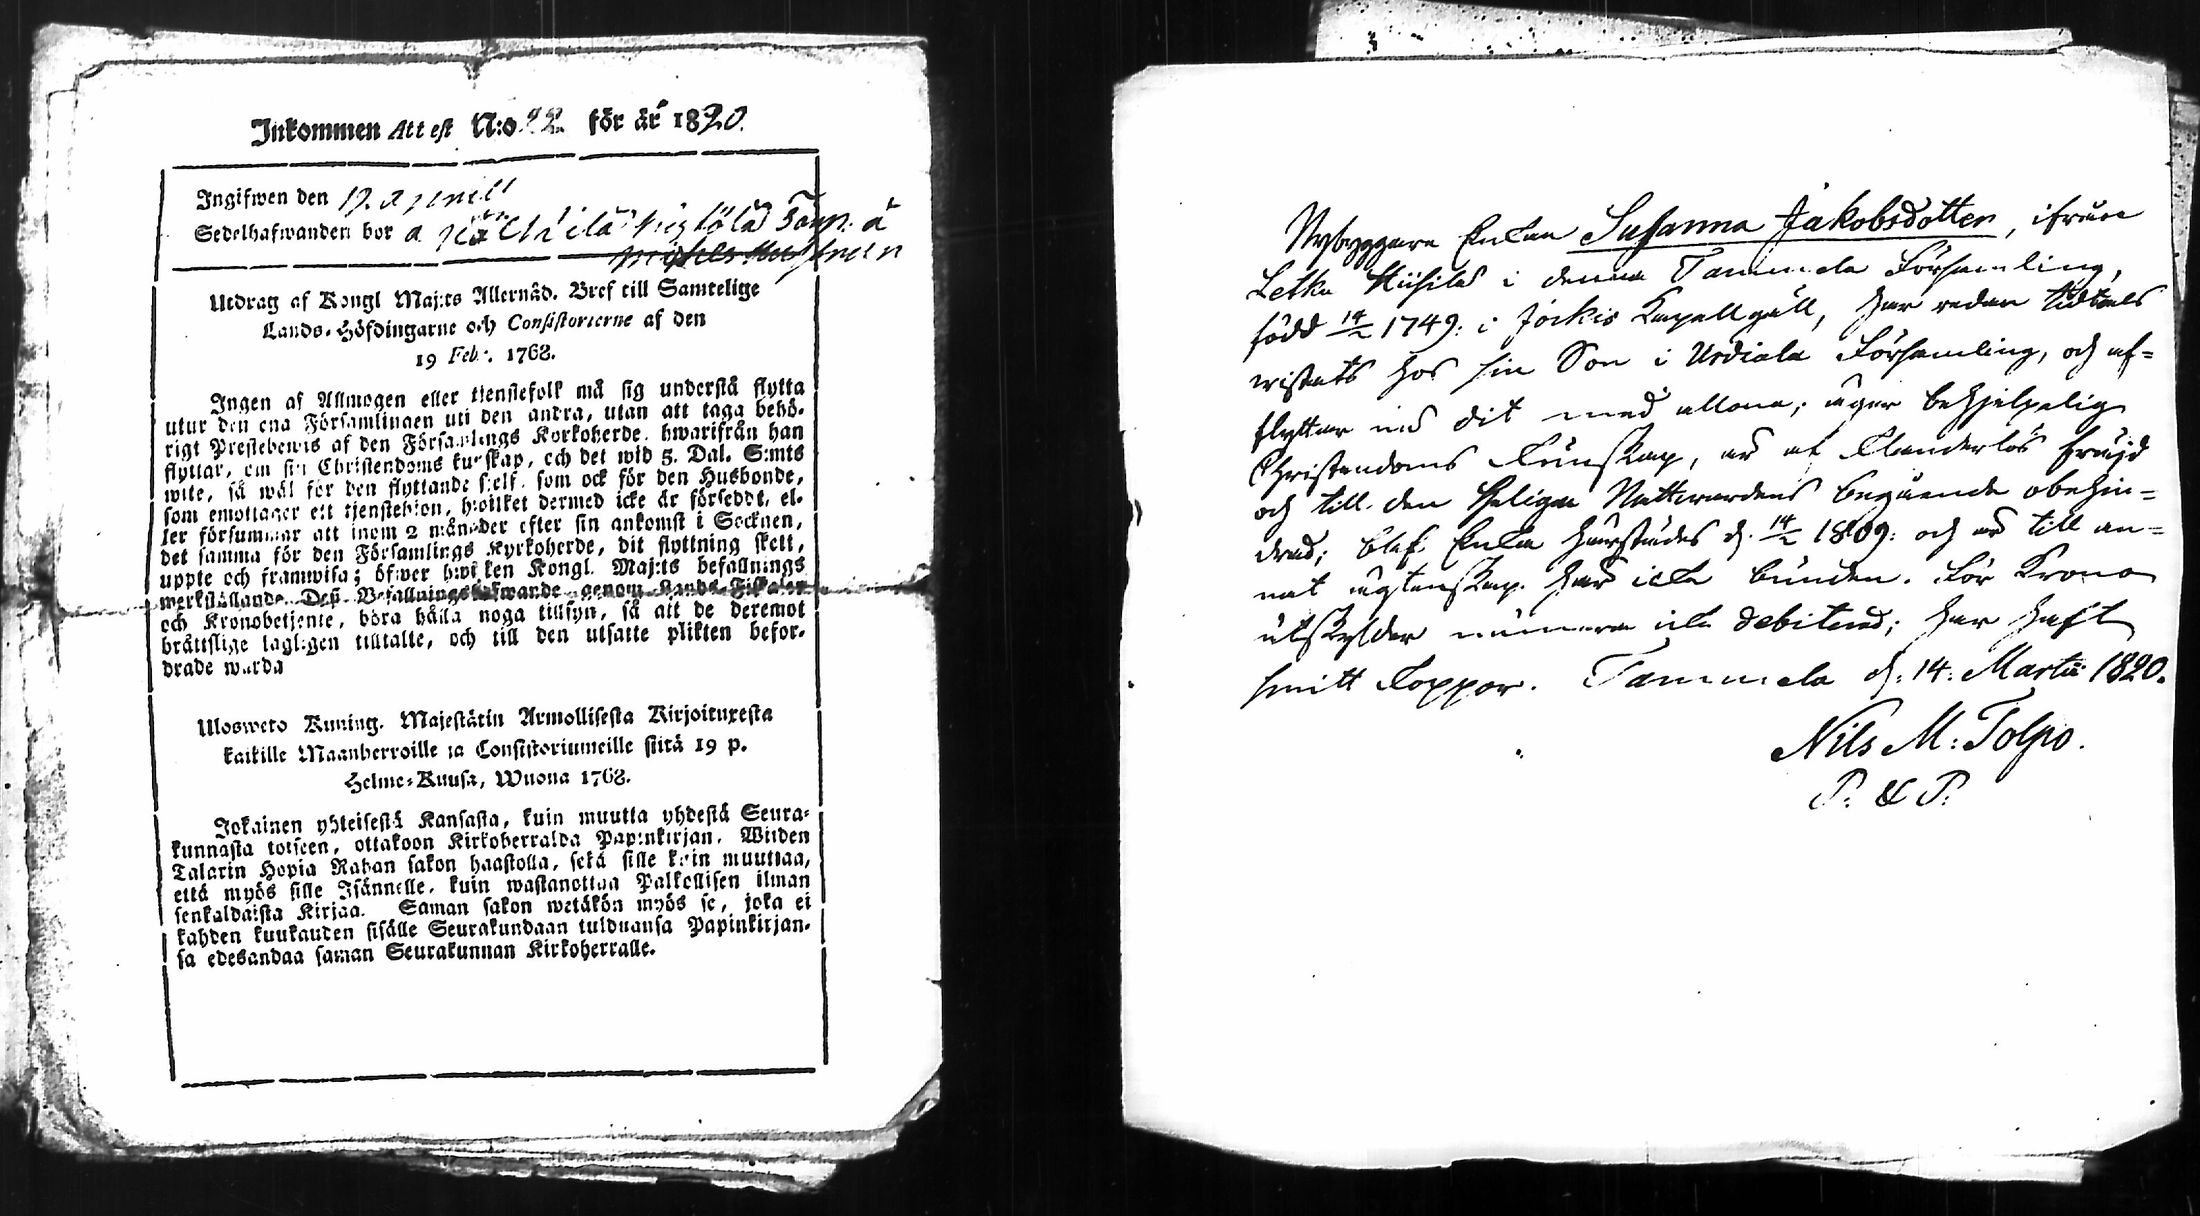 Inkommen Attest N:o 22. för år 1820.
Ingifwen den 19. april
Sedelhafwanden bor å
Utdrag af Kongl Maj:ts Allernåd. Bref till Samtelige
Lands-Höfdingarne och Consistorierne af den
19 Febr. 1768.
Ingen af Allmogen eller tjenstefolk må sig understå flytta
utur den ena Församlingen uti den andra, utan att taga behö-
rigt Prestebewis af den Församlings Kyrkoherde, hwarifrån han
flyttar, om sin Christendoms kunskap, och det wid 5. Dal. S:mts
wite, så wäl för den flyttande sjelf, som ock för den Husbonde,
som emottager ett tjenstehjon, hwilket dermed icke är försedt, el-
ler försummar att inom 2 månader efter sin ankomst i Socknen,
det samma för den Församlings Kyrkoherde, dit flyttning skett,
uppte och framwisa; öfwer hwilken Kongl. Maj:ts befallnings
werkställande Deß Befallningshafwande genom Lands-Fiskaler
och Kronobetjente, böra hålla noga tillsyn, så att de deremot
bråttslige lagligen tilltalte, och till den utsatte plikten befor-
drade warda
Ulosweto Kuning. Majestätin Armollisesta Kirjoituxesta
kaikille Maanherroille ja Consistoriumeille siitä 19 p.
Helme-Kuusa, Wuona 1768.
Jokainen yhteisestä Kansasta, kuin muutta yhdestä Seura-
kunnasta toiseen, ottakoon Kirkoherralda Papinkirjan, Wiiden
Talarin Hopia Rahan sakon haastolla, sekä sille kuin muuttaa,
että myös sille Isännelle, kuin wastanottaa Palkollisen ilman
senkaldaista Kirjaa. Saman sakon wetäkön myös se, joka ei
kahden kuukauden sisälle Seurakundaan tulduansa Papinkirjan-
sa edesandaa saman Seurakunnan Kirkoherralle.
Nybyggare Enkan Susanna Jakobsdotter, ifrån
Letku Hiisilä i denna Tammela Församling,
född 14/2 1749: i Jockis Kapellgäll, har redan tidtals
wistats hos sin Son i Urdiala Församling, och af-
flyttar nu dit med allone; äger behjelpelig
Christendoms Kunskap, är af Klanderlös frejd
och till den Heliga Nattwardens begående obehin-
drad; blef Enka härstädes d. 14/2 1809: och är till an-
nat ägtenskap här icke bunden. För Krono
utskylder numera icke debiterad; har haft
smitt koppor. Tammela d: 14: Martii 1820.
Nils M: Tolpo.
P. & P.